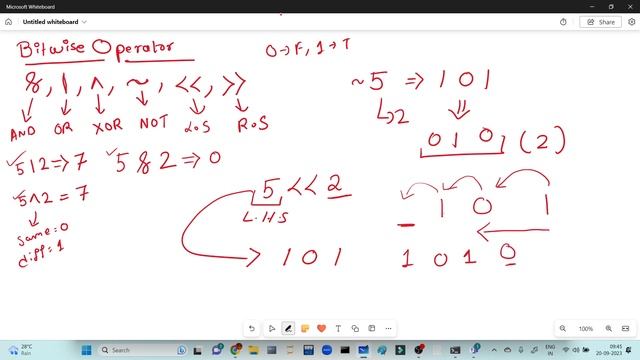 Microsoft Whiteboard
Untitled whiteboard
Share
Bitwise Operator
0→F, 1→T
&, |, ^, ~, <<, >>
AND OR XOR NOT L.S R.S
~5 ⇒ 1 0 1
↳2
0 1 0 (2)
✓5|2 ⇒ 7
✓5 & 2 ⇒ 0
✓5^2 = 7
same=0
diff=1
5 << 2
L.H.S
1 0 1
_ 1 0 1
1 0 1 0
100%
28°C
Rain
Search
ENG
IN
09:45
20-09-2023